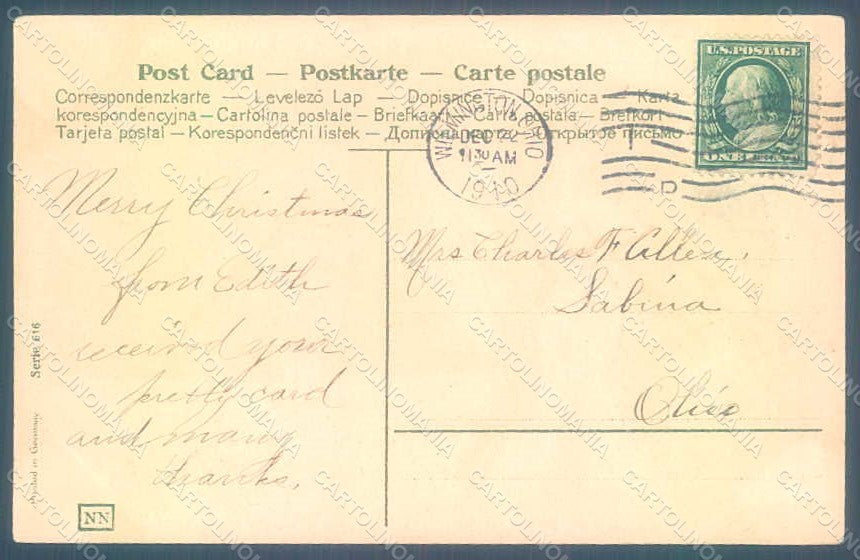 Post Card — Postkarte — Carte postale
Correspondenzkarte — Levelező Lap — Dopisnice — Dopisnica — Karta
korespondencyjna — Cartolina postale — Briefkaart — Carta postala — Brefkort
Tarjeta postal — Korespondenčni listek — Дописна карта — Открытое письмо
U.S. POSTAGE
ONE CENT
WILMINGTON, OHIO
DEC 22
11 30 AM
1910
D
Merry Christmas
from Edith
received your
pretty card
and many
thanks.
Mrs Charles F Allen.
Sabina
Ohio
Serie 616
Printed in Germany
NN
CARTOLINOMANIA